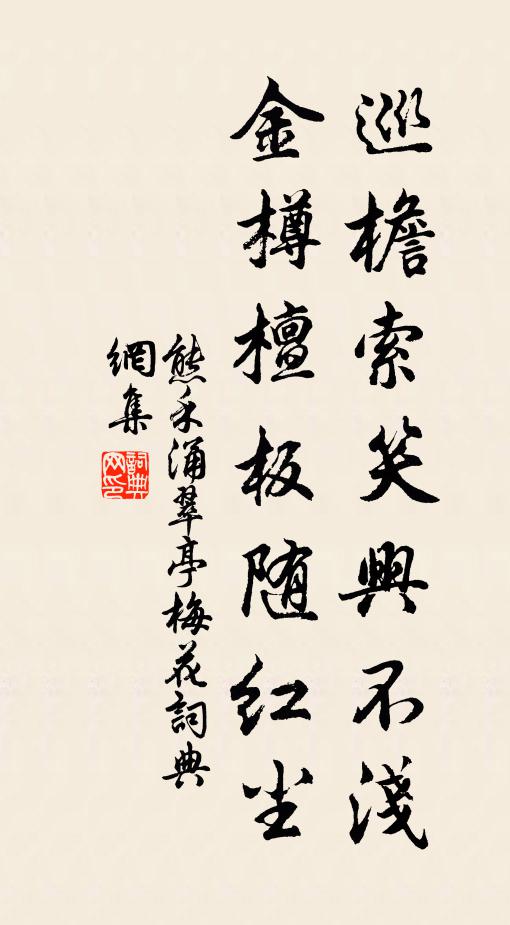 巡檐索笑興不淺
金樽檀板随红尘
熊禾涌翠亭梅花詞典
網集
詞典網印